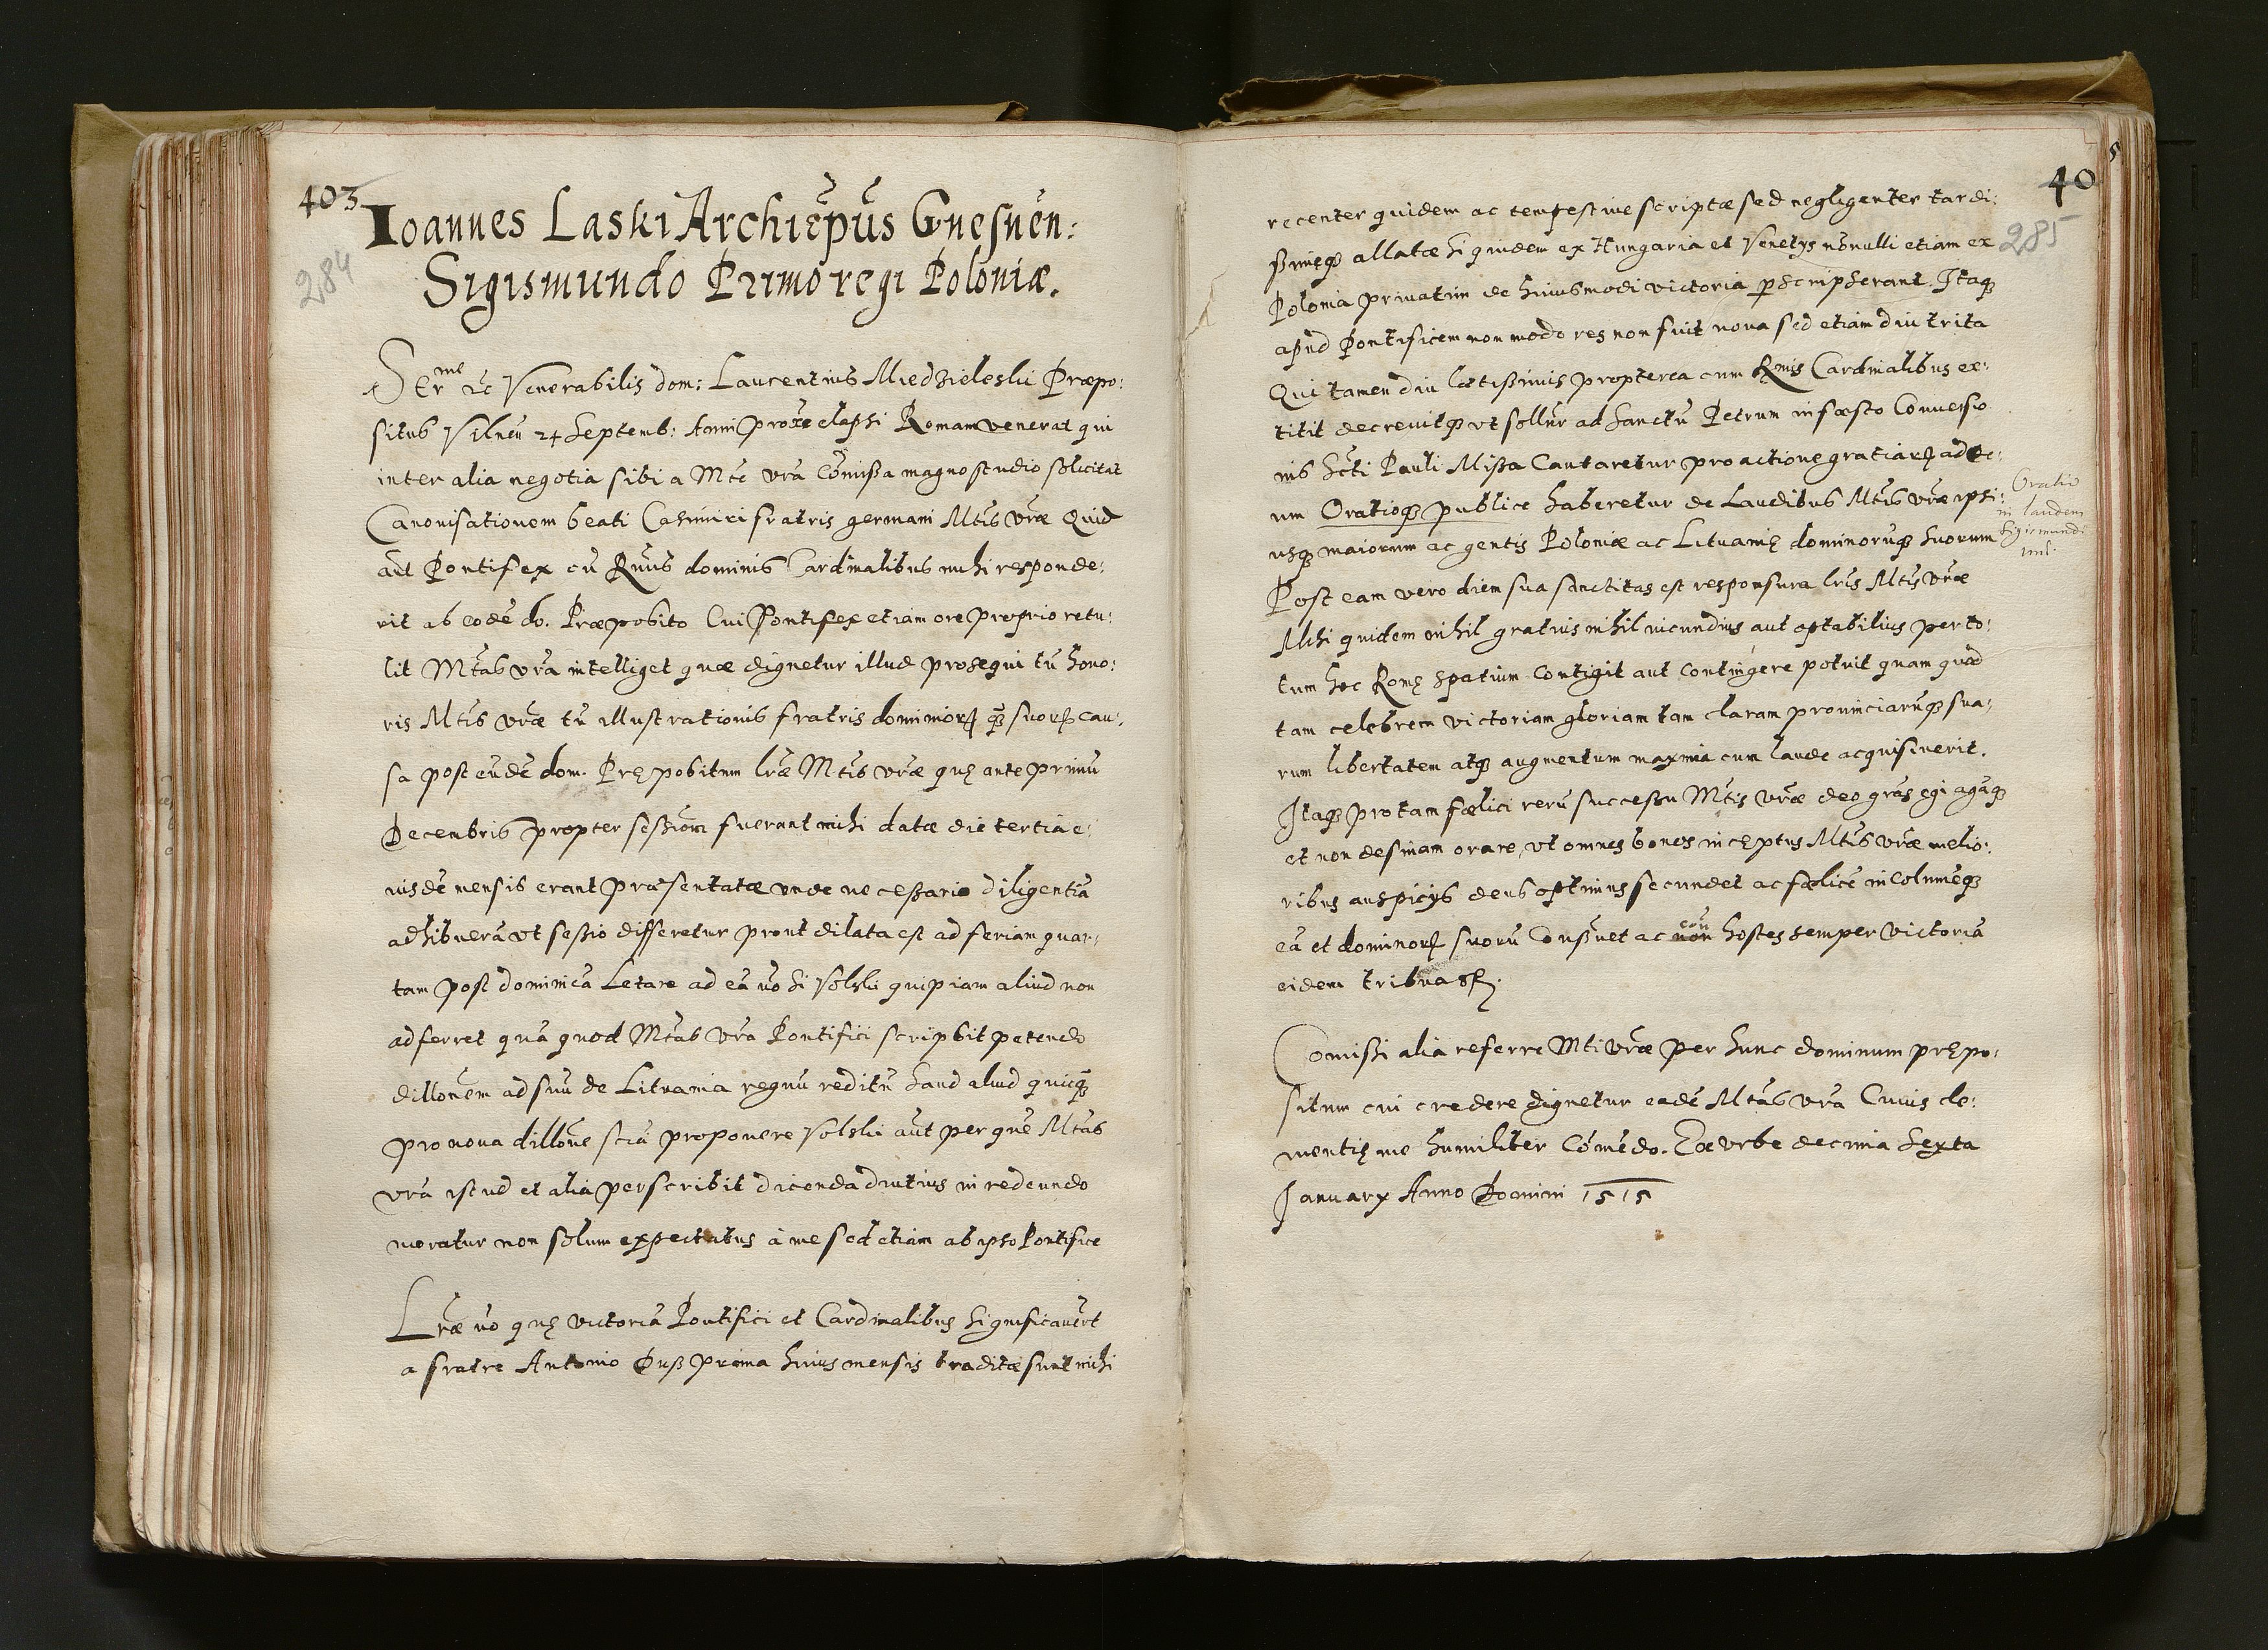 403
284
Ioannes Laski Archiēpūs Gnesnēn:
Sigismundo Primo regi Poloniæ.
Serme etc Venerabilis dom: Laurentius Miedzieleski Præpo:
situs Vilneñ 24 Septemb: Anni proxe elapsi Romam venerat qui
inter alia negotia sibi a Mte vrã Cõmißa magno studio solicitat
Canonisationem beati Casimiri fratris germani Mtis vræ Quid
aut Pontifex cũ Rmis dominis Cardinalibus mihi responde:
rit ab eodẽ do. Præposito Cui Pontifex etiam ore proprio retu:
lit Mtas vrã intelliget quæ dignetur illud prosequi tũ hono:
ris Mtis vræ tũ illustrationis fratris dominiorꝝ qꝫ suorꝝ cau:
sa post eũdẽ dom. Prępositum lræ Mtis vræ quę ante primũ
Decembris propter seßionẽ fuerant mihi datæ die tertia e:
iusdẽ mensis erant præsentatæ vnde neceßario diligentiã
adhibuerã vt seßio differetur prout dilata est ad feriam quar:
tam post dominicã Letare ad eã vo si Volski quipiam aliud non
adferret quã quod Mtas vrã Pontifici scripsit petendo
dillonem ad suũ de Lituania regnũ reditũ haud aliud quicqꝫ
pro noua dillone sciã proponere Volski aut per quẽ Mtas
vrã istud et alia perscribit dicenda diutius in redeundo
moratur non solum expectatus à me sed etiam ab ipso Pontifice
Lræ vo quę victoriã Pontifici et Cardinalibus significauẽrt
a fratre Antonio Duß prima huius mensis traditæ sunt mihi
405
285
recenter quidem ac tempestiue scriptæ sed negligenter tardi:
ßimęqꝫ allatæ siquidem ex Hungaria et Venetys nõnulli etiam ex
Polonia priuatim de huiusmodi victoria pscripserant. Itaqꝫ
apud Pontificem non modo res non fuit noua sed etiam diu trita
Qui tamen diu lætißimus propterea cum Rmis Cardinalibus ex:
titit decreuitqꝫ vt sollñr ad Sanctũ Petrum in fæsto Conuersio
nis Scti Pauli Mißa Cantaretur pro actione gratiarꝝ ad De:
um Oratioqꝫ publice haberetur de Laudibus Mtis vræ ipsi:
usqꝫ maiorum ac gentis Poloniæ ac Lituanię dominorũqꝫ suorum
Oratio
in laudem
Sigismundi
Post eam vero diem sua sanctitas est responsura lris Mtis vræ
Mihi quidem nihil gratius nihil iucundius aut optabilius per to:
tum hoc Romę spatium Contigit aut Contingere potuit quam quod
tam celebrem victoriam gloriam tam claram prouinciarũqꝫ sua:
rum libertatem atqꝫ augmentum maxima cum laude acquisiuerit.
Itaqꝫ pro tam fælici rerũ succeßu Mtis vræ deo gras egi agãqꝫ
et non desinam orare, vt omnes bonos incęptus Mtis vræ melio:
ribus auspicys deus optimus secundet ac fælicẽ incolumẽqꝫ
eã et dominorꝝ suorũ Conßuet ac non con hostes semper victoriã
eidem tribuat.
Comißi alia referre Mti vræ per hunc dominum prępo:
situm cui credere dignetur eadẽ Mtas vrã Cuius cle:
mentię me humiliter Cõmẽdo. Ex vrbe decima Sexta
January Anno Domini 1515